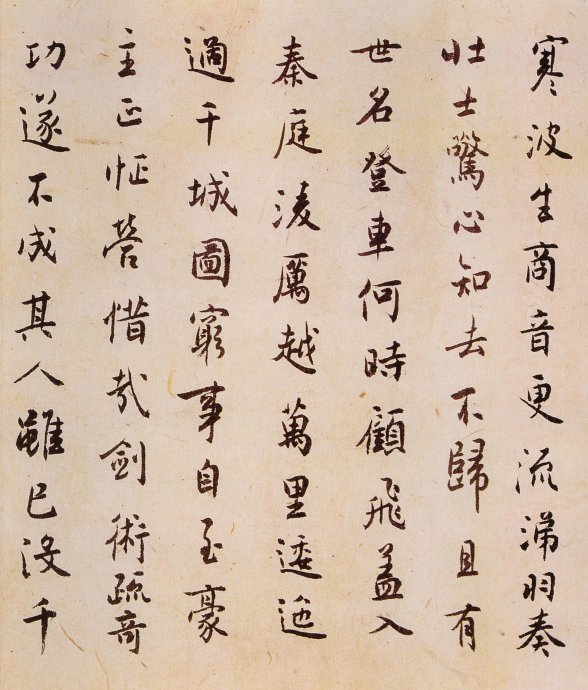 寒波生商音更流涕羽奏
壮士驚心知去不歸且有
世名登車何時顧飛蓋入
秦庭淩厲越萬里逶迤
過千城圖窮事自至豪
主正怔營惜哉劍術疏奇
功遂不成其人雖已没千